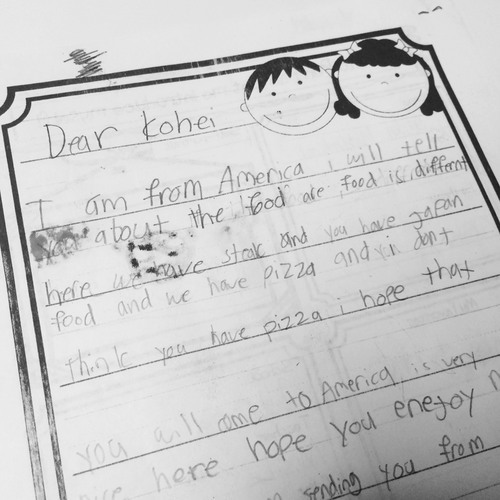 Dear Kohei
I am from America i will tell
you about the food are food is different
here we have steak and you have japan
food and we have pizza and i dont
think you have pizza i hope that
you will come to America is very
nice here hope you enejoy
sending you from